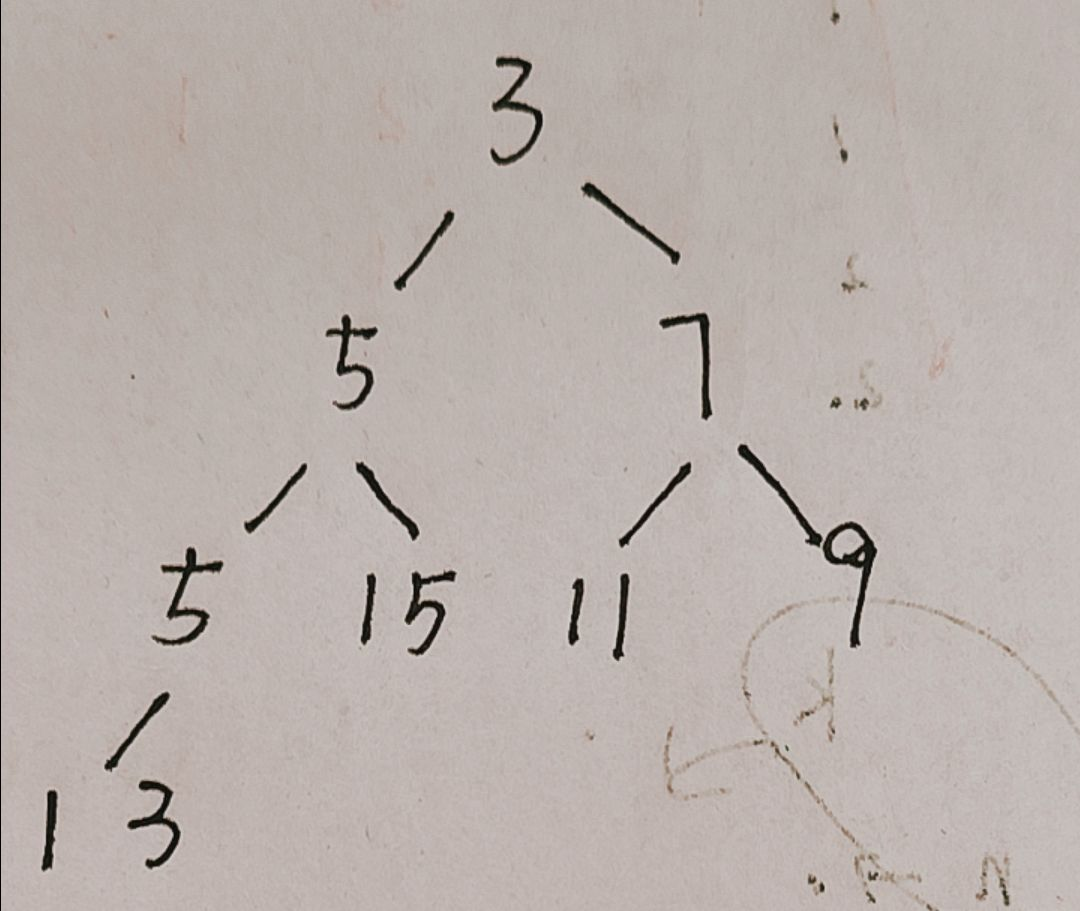 3
5 7
5 15 11 9
13